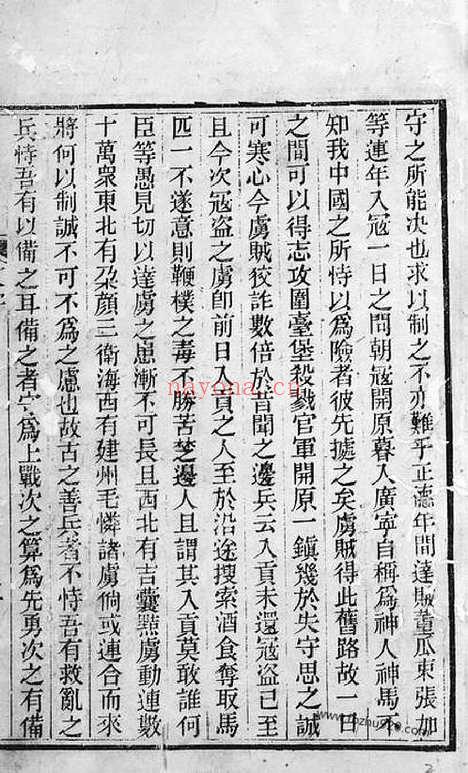 守之所能决也求以制之不亦難乎正德年間達賊董瓜東張加
等連年入冦一日之間朝冦開原暮入廣寧自稱爲神人神馬不
知我中國之所恃以爲險者彼先據之矣虜賊得此舊路故一日
之間可以得志攻圍臺堡殺戮官軍開原一鎮幾於失守思之誠
可寒心今虜賊狡詐數倍於昔聞之邊兵云入貢未還冦盗已至
且今次冦盗之虜卽前日入貢之人至於沿途搜索酒食奪取馬
匹一不遂意則鞭樸之毒不勝苦楚邊人且謂其入貢莫敢誰何
臣等愚見切以達虜之患漸不可長且西北有吉囊㷸虜動連數
十萬衆東北有朶顔三衛海西有建州毛憐諸虜倘或連合而來
將何以制誠不可不爲之慮也故古之善兵者不恃吾有救亂之
兵恃吾有以備之耳備之者守爲上戰次之算爲先勇次之有備
nayona.cn